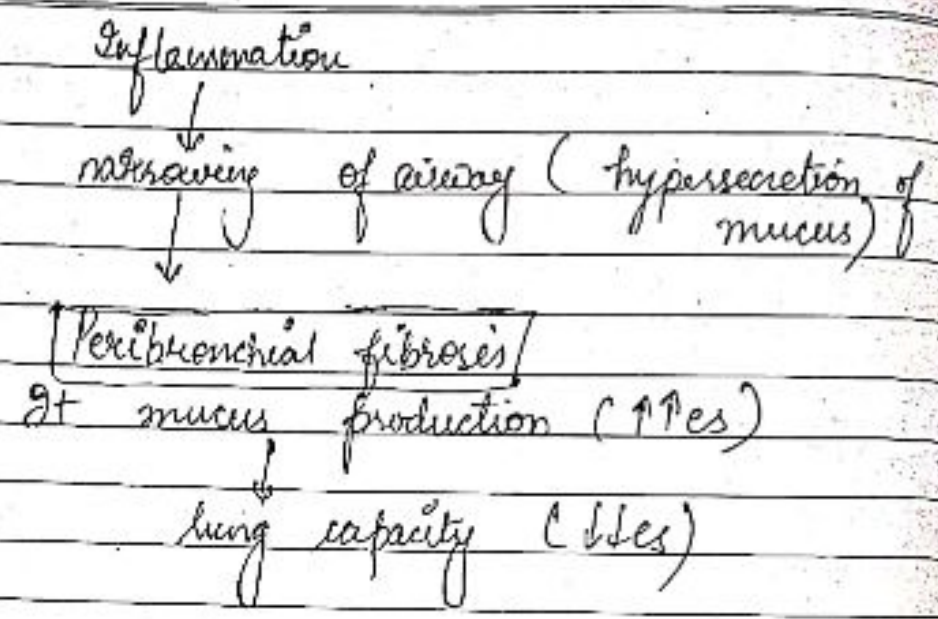 Inflammation
↓
narrowing of airway ( hypersecretion of
mucus)
↓
Peribronchial fibrosis
It mucus production (↑↑es)
↓
lung capacity (↓↓es)